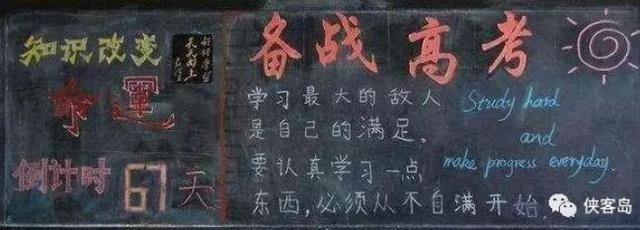 知识改变
命運
倒计时 67 天
好好学习
天天向上
备战高考
学习最大的敌人
是自己的满足。
要认真学习一点
东西,必须从不自满开始.
Study hard
and
make progress everyday.
侠客岛